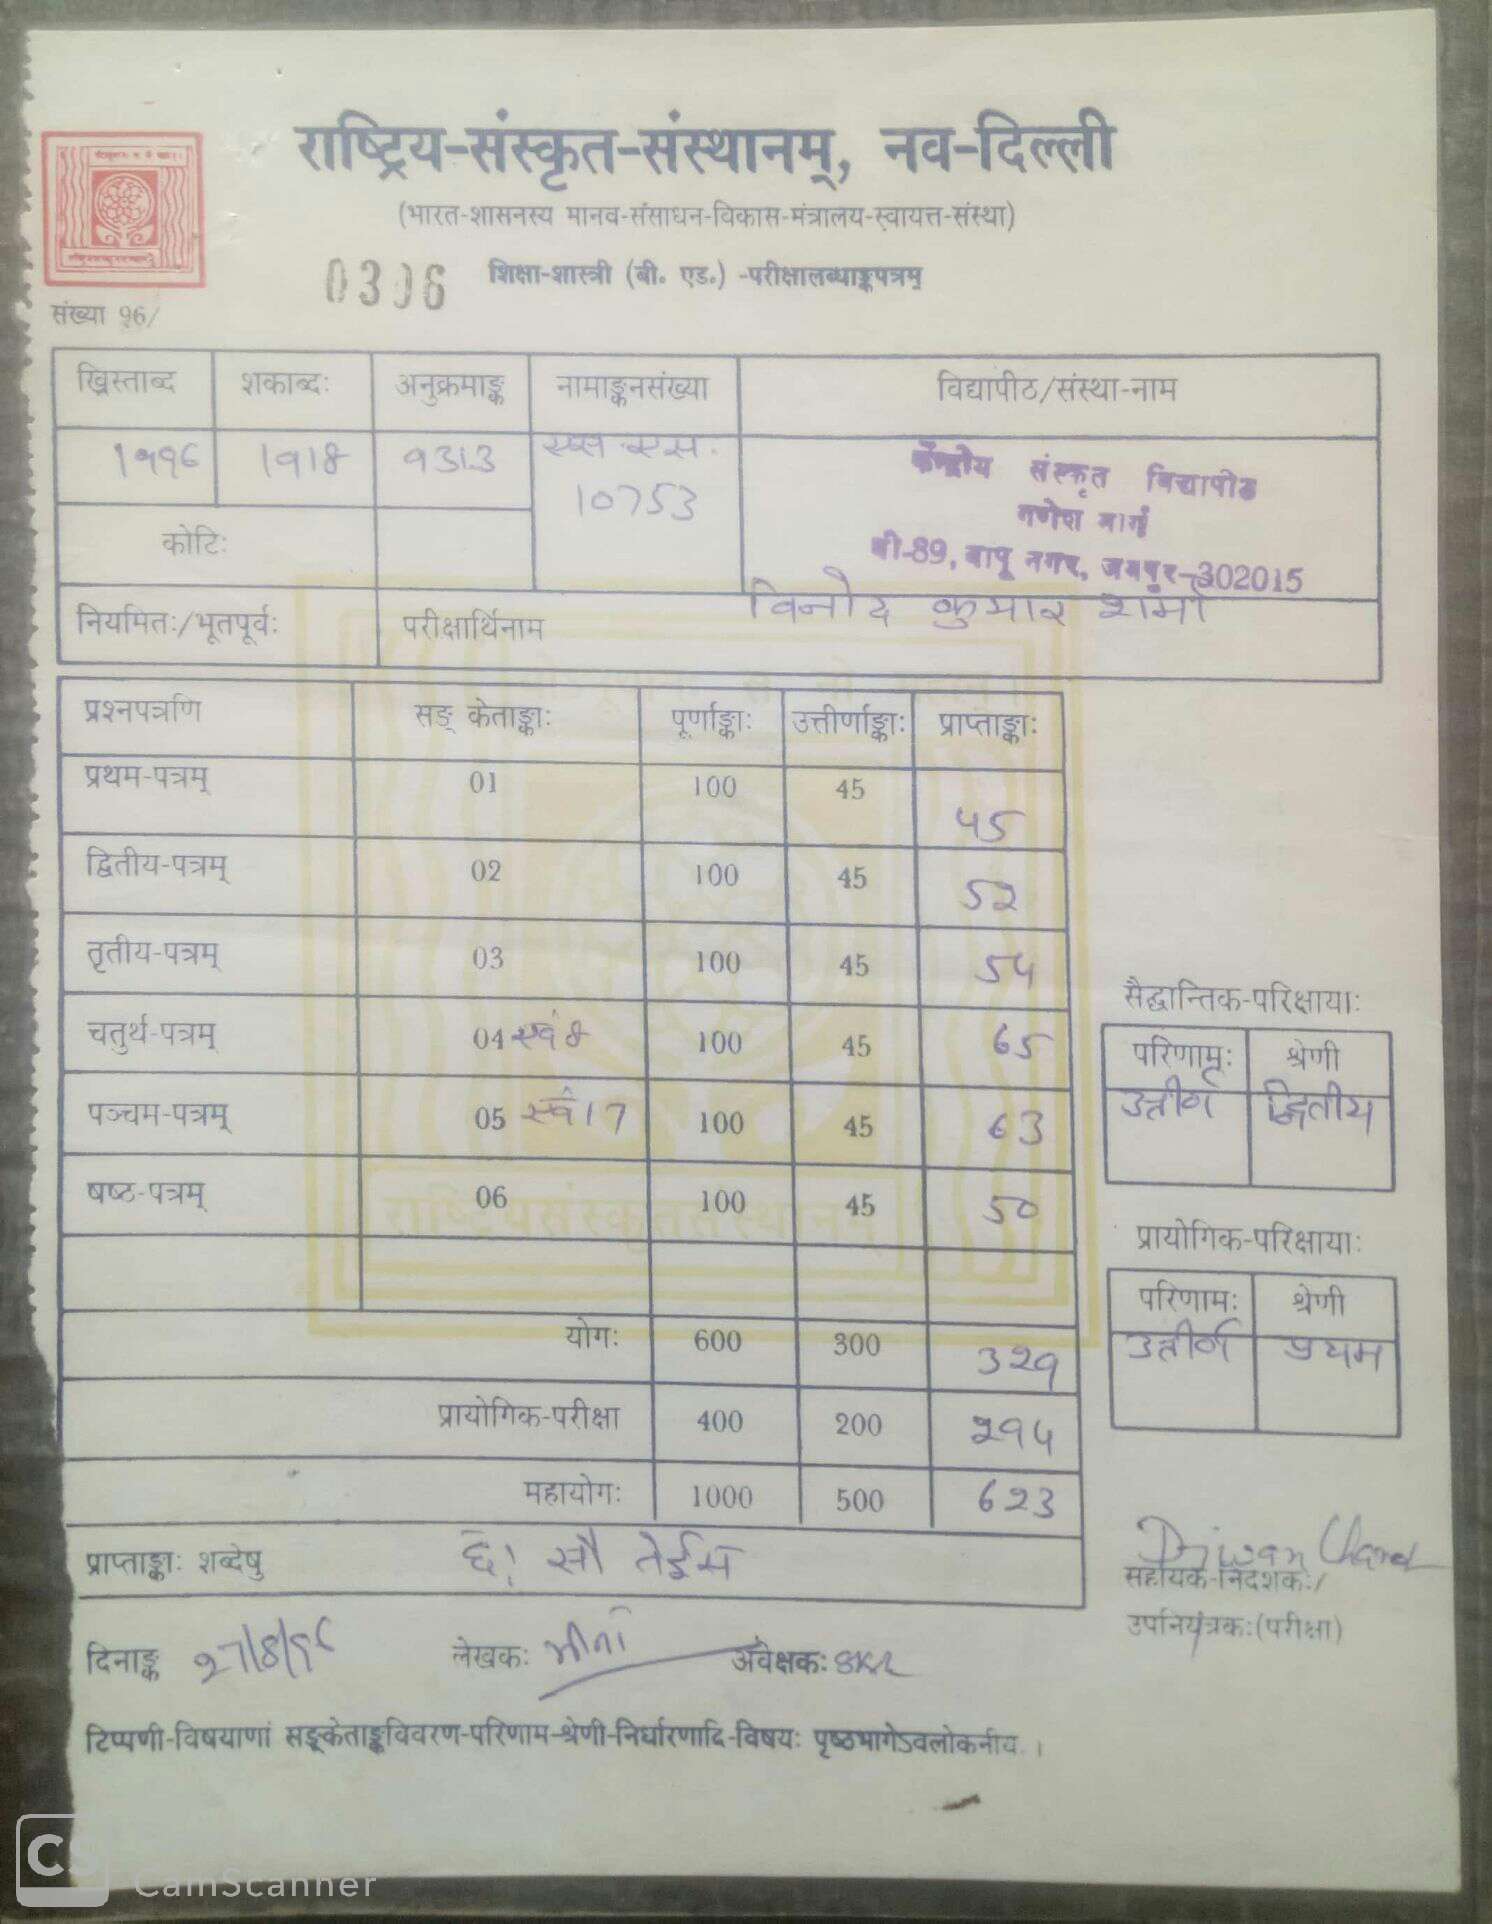 राष्ट्रिय-संस्कृत-संस्थानम्, नव-दिल्ली
(भारत-शासनस्य मानव-संसाधन-विकास-मंत्रालय-स्वायत्त-संस्था)
0306 शिक्षा-शास्त्री (बी. एड.) -परीक्षालब्धाङ्कपत्रम्
संख्या 96/
ख्रिस्ताब्द शकाब्दः अनुक्रमाङ्क नामाङ्कनसंख्या विद्यापीठ/संस्था-नाम
1996 1918 9313 एस.एस. 10753
केन्द्रीय संस्कृत विद्यापीठ
गणेश मार्ग
बी-89, बापू नगर, जयपुर-302015
कोटिः
नियमितः/भूतपूर्वः परीक्षार्थिनाम विनोद कुमार शर्मा
प्रश्नपत्रणि सङ् केताङ्काः पूर्णाङ्काः उत्तीर्णाङ्काः प्राप्ताङ्काः
प्रथम-पत्रम् 01 100 45 45
द्वितीय-पत्रम् 02 100 45 52
तृतीय-पत्रम् 03 100 45 54
चतुर्थ-पत्रम् 04 एवं 8 100 45 65
पञ्चम-पत्रम् 05 एवं 17 100 45 63
षष्ठ-पत्रम् 06 100 45 50
राष्ट्रियसंस्कृतसंस्थानम्
योगः 600 300 329
प्रायोगिक-परीक्षा 400 200 294
महायोगः 1000 500 623
प्राप्ताङ्काः शब्देषु छः सौ तेईस
सैद्धान्तिक-परिक्षायाः
परिणामः श्रेणी
उत्तीर्ण द्वितीय
प्रायोगिक-परिक्षायाः
परिणामः श्रेणी
उत्तीर्ण प्रथम
Diwan Chand
सहायक-निदेशकः/
उपनियंत्रकः(परीक्षा)
दिनाङ्क 27/8/96 लेखकः मीना अवेक्षकः
टिप्पणी-विषयाणां सङ्केताङ्कविवरण-परिणाम-श्रेणी-निर्धारणादि-विषयः पृष्ठभागेऽवलोकनीय.।
CS CamScanner